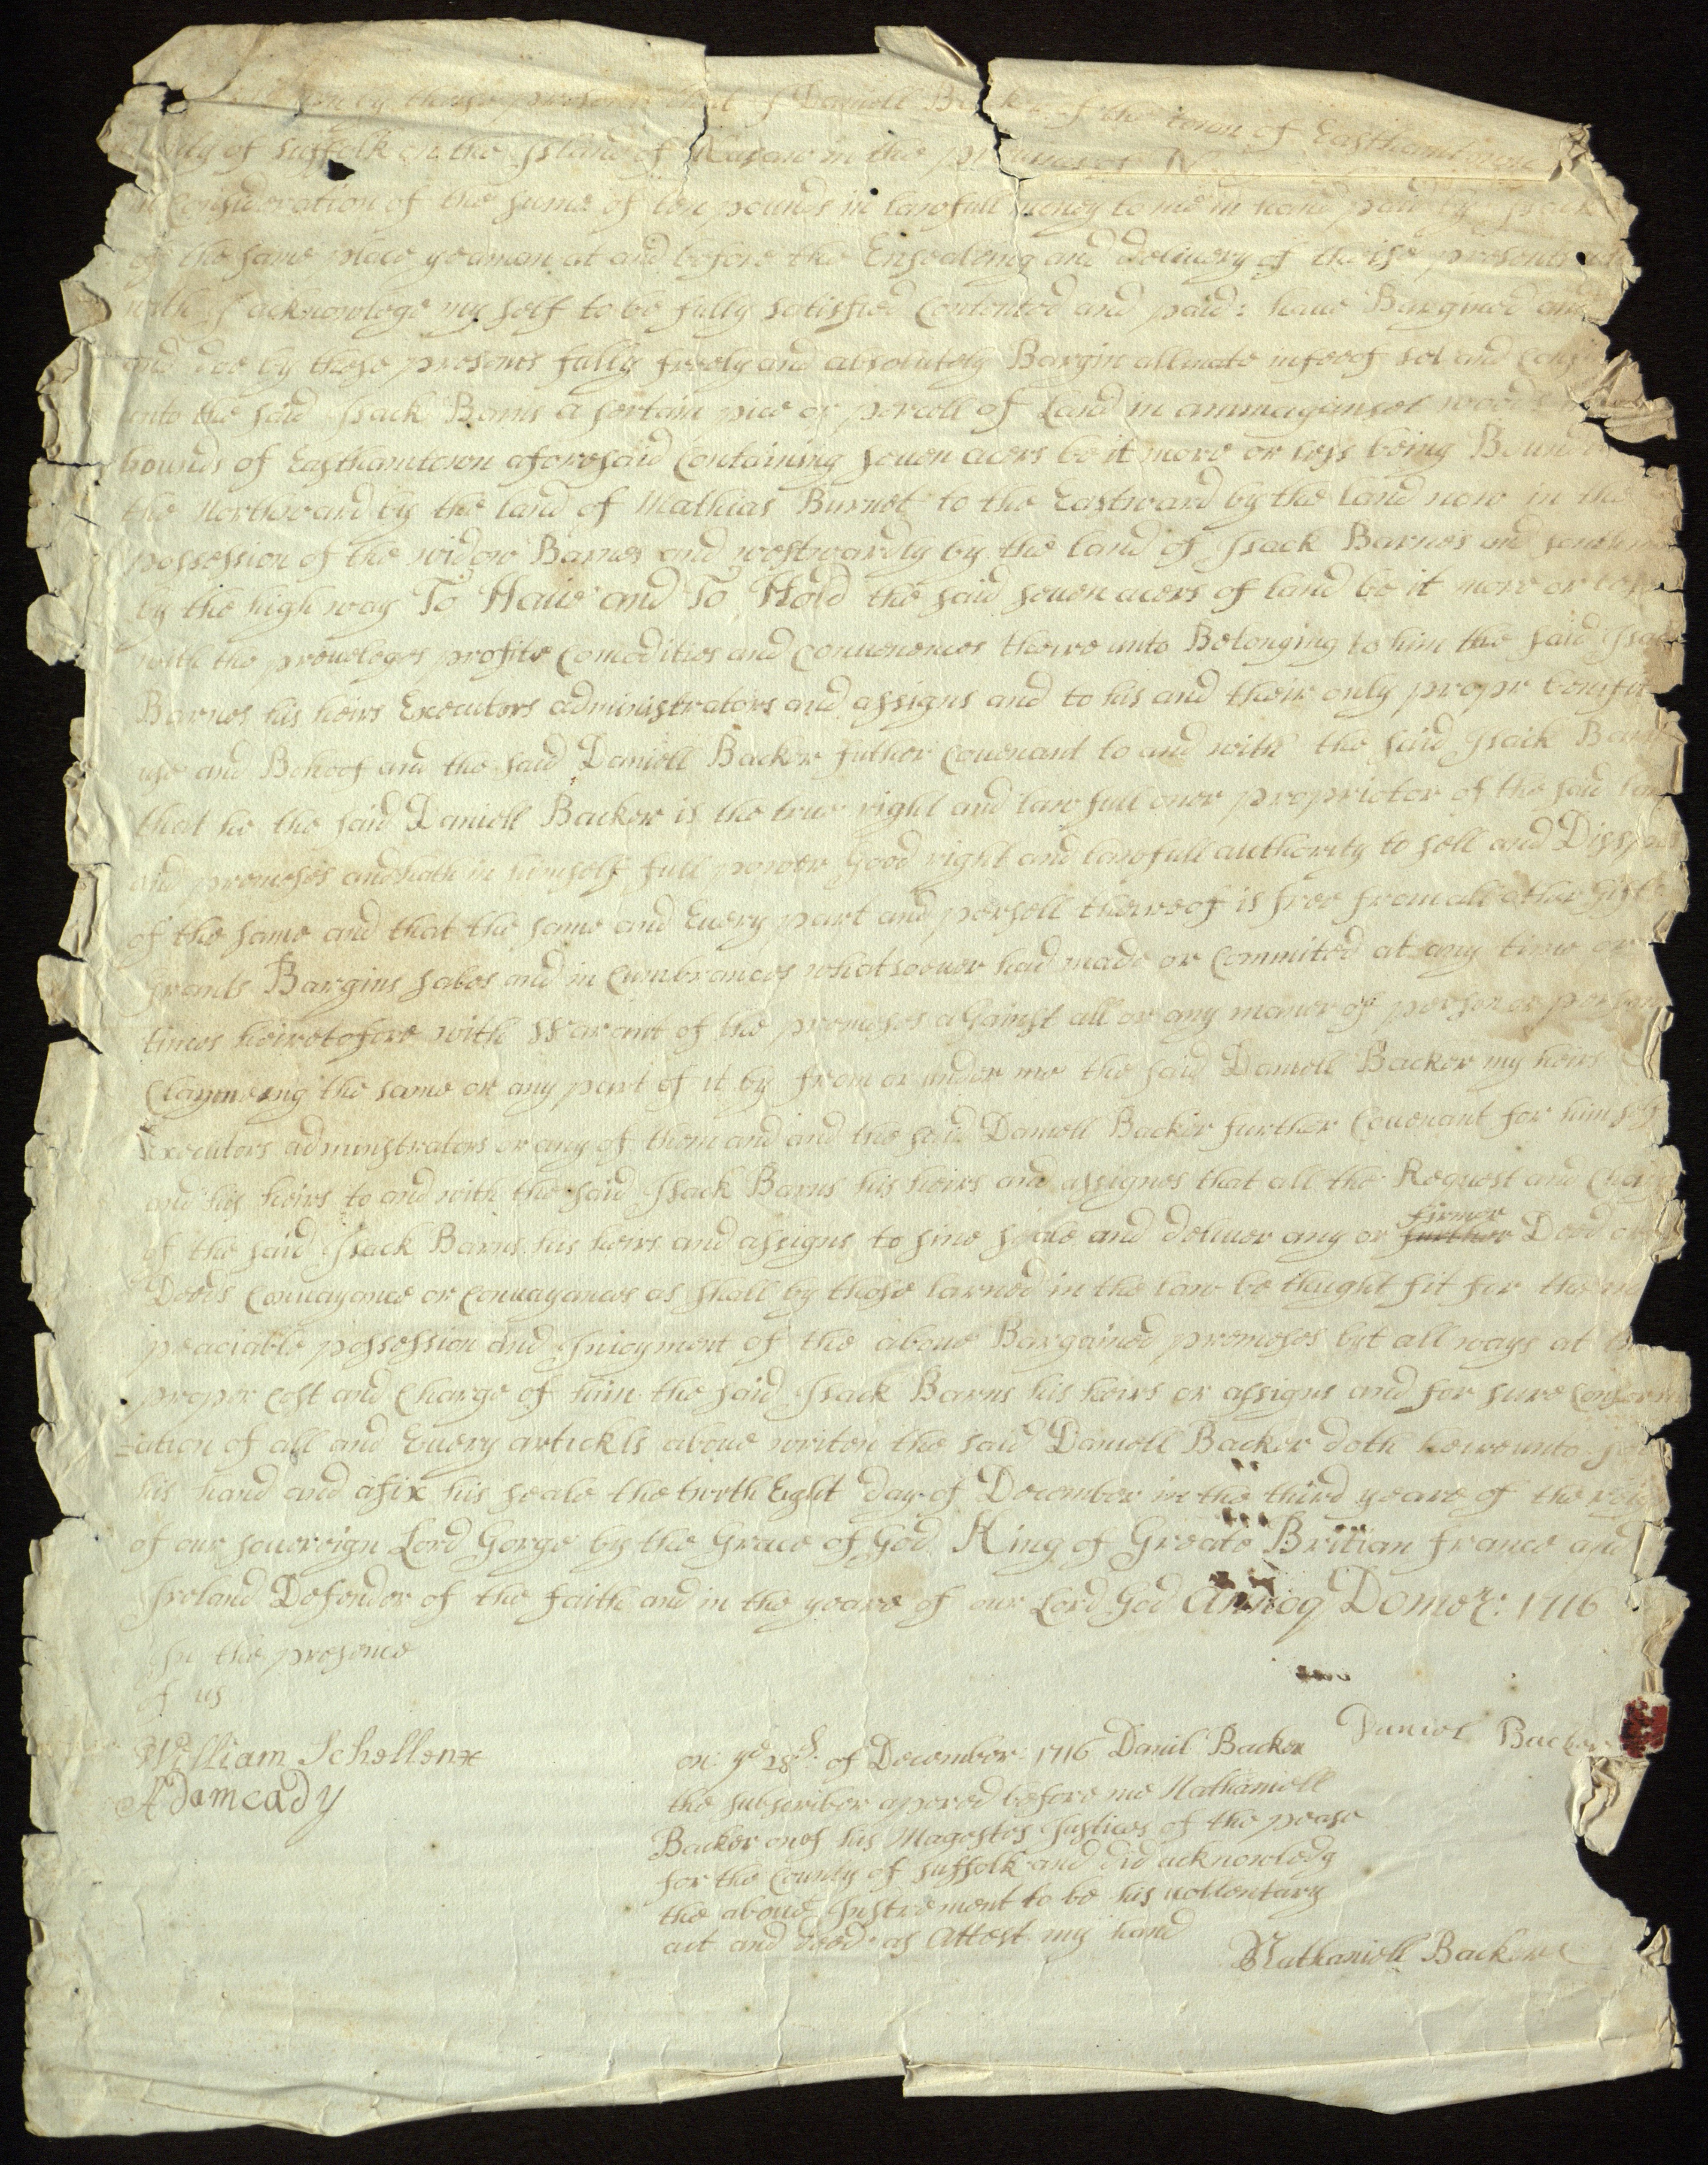 by these presents that I Daniell Backer of the town of Easthamtown
of Suffolk on the Island of Nasaw in the
in Consideration of the sume of ten pounds in lawfull money to me in hand paid by Isack
of the same place yeaman at and before the Ensealeing and delivery of theise presents
with I acknowlege my self to be fully satisfied Contented and paid: haue Bargined and
and doe by these presents fully freely and absolutely Bargin allinate infeeof sel and
unto the said Isack Barns a sertain pice or percell of Land in ammaganset woods
bounds of Easthamtown aforesaid Containing seuen acers be it more or less being
the Northward by the land of Mathias Burnet to the Eastward by the land now in the
possession of the widow Barnes and westwardly by the land of Isack Barnes and
by the high way To Haue and To Hold the said seuen acers of land be it more or less
with the preueleges profits Comodities and Conuenences theire unto Belonging to him the said Isack
Barnes his heirs Executors administrators and assigns and to his and their only propr benifit
use and Behoof and the said Daniell Backer futher Couenant to and with the said Isack Barns
that he the said Daniell Backer is the true right and lawfull oner proprietor of the said land
and premeses and hath in himself full power Good right and lawfull authority to sell and
of the same and that the same and Euery part and persell theireof is free from all other Gifts
grants Bargins sales and in Cumbrances whatsoeuer had made or Committed at any time or
times heiretofore with Warant of the premeses against all or any maner of person or persons
Claymeing the same or any part of it by from or under me the said Daniell Backer my heirs
Executors adminstrators or any of them and and the said Daniell Backer further Couenant for himself
and his heirs to and with the said Isack Barns his heirs and assignes that all the Request and
of the said Isack Barns his heirs and assigns to sine seale and deliuer any or further firmer Deed or
Deeds Conuayance or Conuayances as shall by those larned in the law be thught fit for the
peaciable possession and Inioyment of the aboue Bargained premeses but all ways at
proper Cost and Charge of him the said Isack Barns his heirs or assigns and for sure
=ation of all and Euery artickls aboue writen the said Daniell Backer doth heireunto
his hand and afix his seale the twnth Eight day of December in the third yeare of the
of our souereign Lord Gorge by the Grace of God King of Greate Britian france and
Ireland Defender of the faith and in the yeare of our Lord God Annoq Dome: 1716
In the presence
of us
William Schellenx
Adam cady
Daniel Backer
on ye 28th of December: 1716 Daniil Backer
the subscriber apered before me Nathaniell
Backer one of his Magestes Justices of the pease
for the County of Suffolk and did acknowledg
the aboue Instrement to be his vollentary
act and deed as Attest my hand
Nathaniell Backer